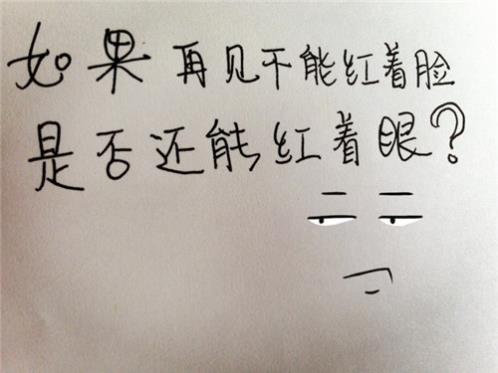 如果再见不能红着脸
是否还能红着眼?